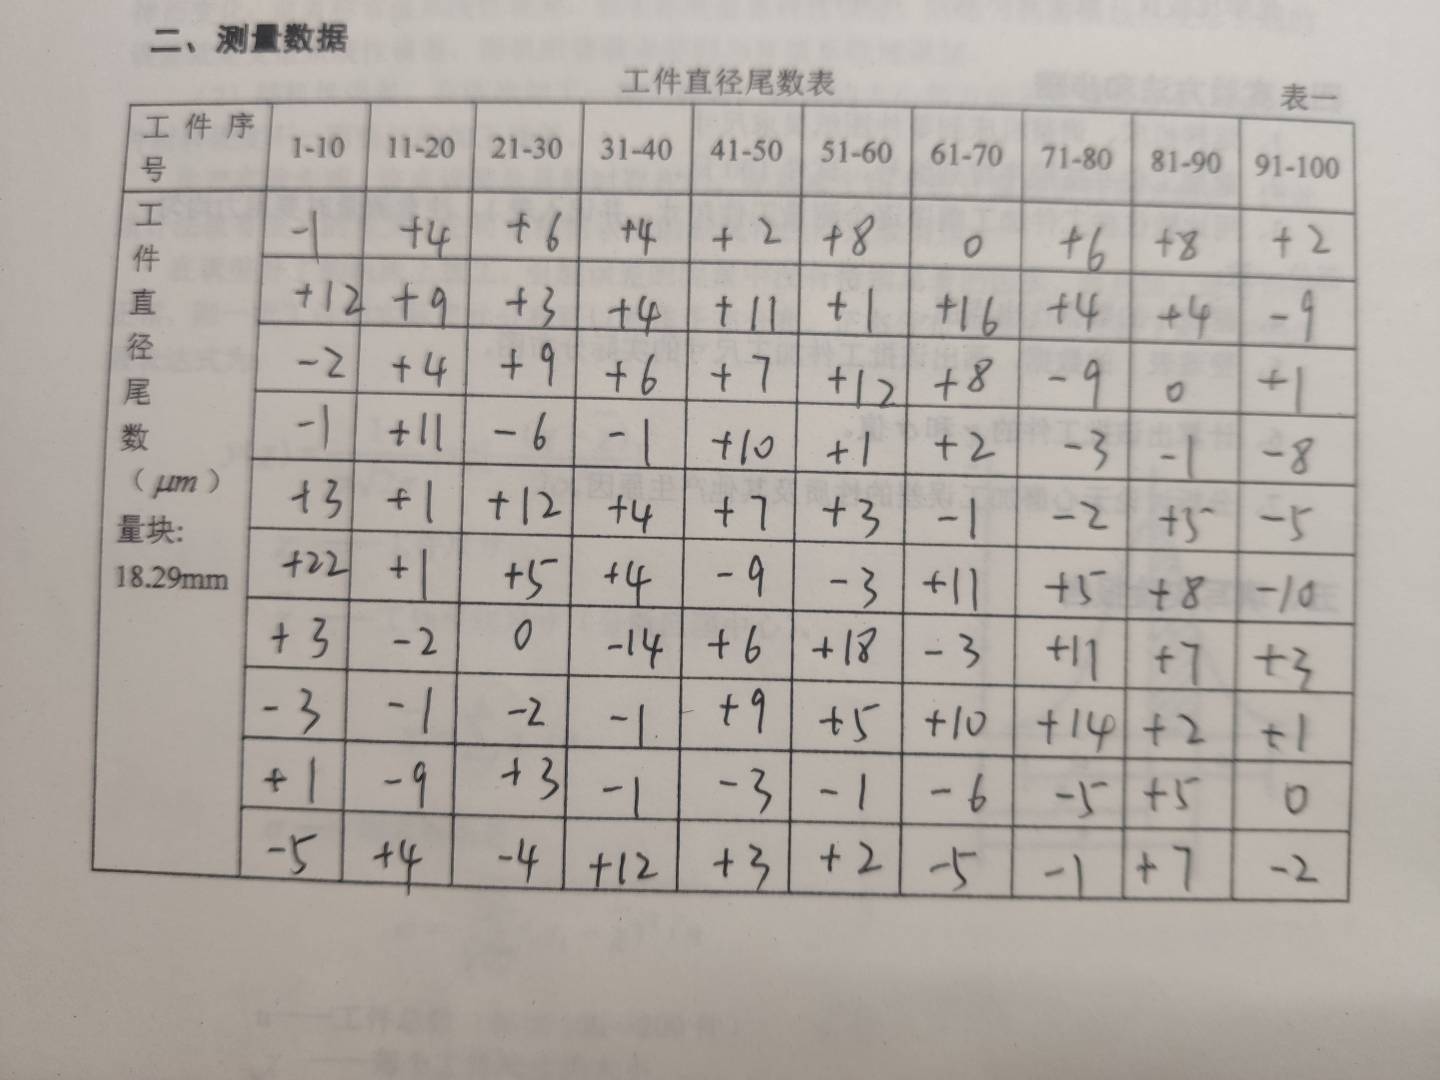 二、测量数据
工件直径尾数表 表一
工件序号 1-10 11-20 21-30 31-40 41-50 51-60 61-70 71-80 81-90 91-100
工件直径尾数（μm）量块:18.29mm
-1 +4 +6 +4 +2 +8 0 +6 +8 +2
+12 +9 +3 +4 +11 +1 +16 +4 +4 -9
-2 +4 +9 +6 +7 +12 +8 -9 0 +1
-1 +11 -6 -1 +10 +1 +2 -3 -1 -8
+3 +1 +12 +4 +7 +3 -1 -2 +5 -5
+22 +1 +5 +4 -9 -3 +11 +5 +8 -10
+3 -2 0 -14 +6 +18 -3 +11 +7 +3
-3 -1 -2 -1 +9 +5 +10 +14 +2 +1
+1 -9 +3 -1 -3 -1 -6 -5 +5 0
-5 +4 -4 +12 +3 +2 -5 -1 +7 -2